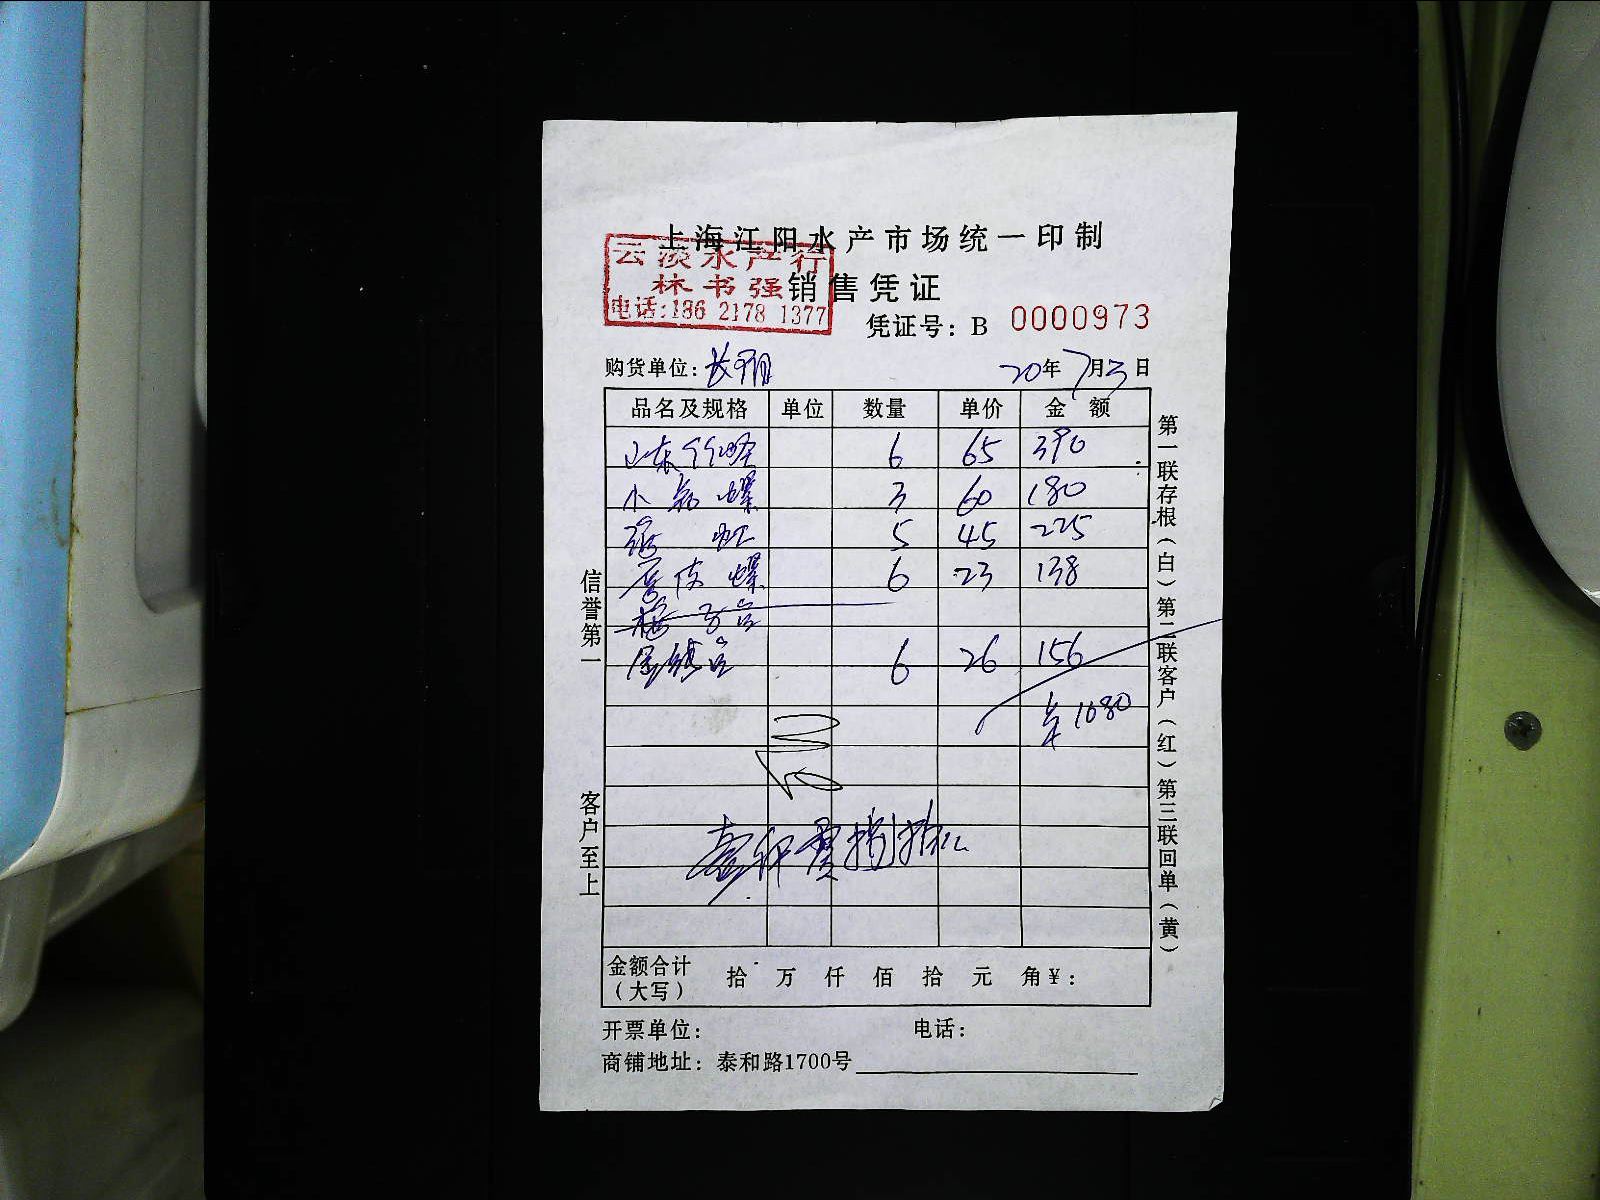 上海江阳水产市场统一印制
云淡水产行
林书强
电话:186 2178 1377
销售凭证
凭证号: B 0000973
购货单位: 长翔 20年7月3日
品名及规格 单位 数量 单价 金额
山东竹蛏 6 65 390
小 螺 3 60 180
虹 5 45 225
皮螺 6 23 138
6 26 156
1080
金额合计(大写) 拾 万 仟 佰 拾 元 角 ¥:
开票单位: 电话:
商铺地址: 泰和路1700号
信誉第一 客户至上
第一联存根(白) 第二联客户(红) 第三联回单(黄)